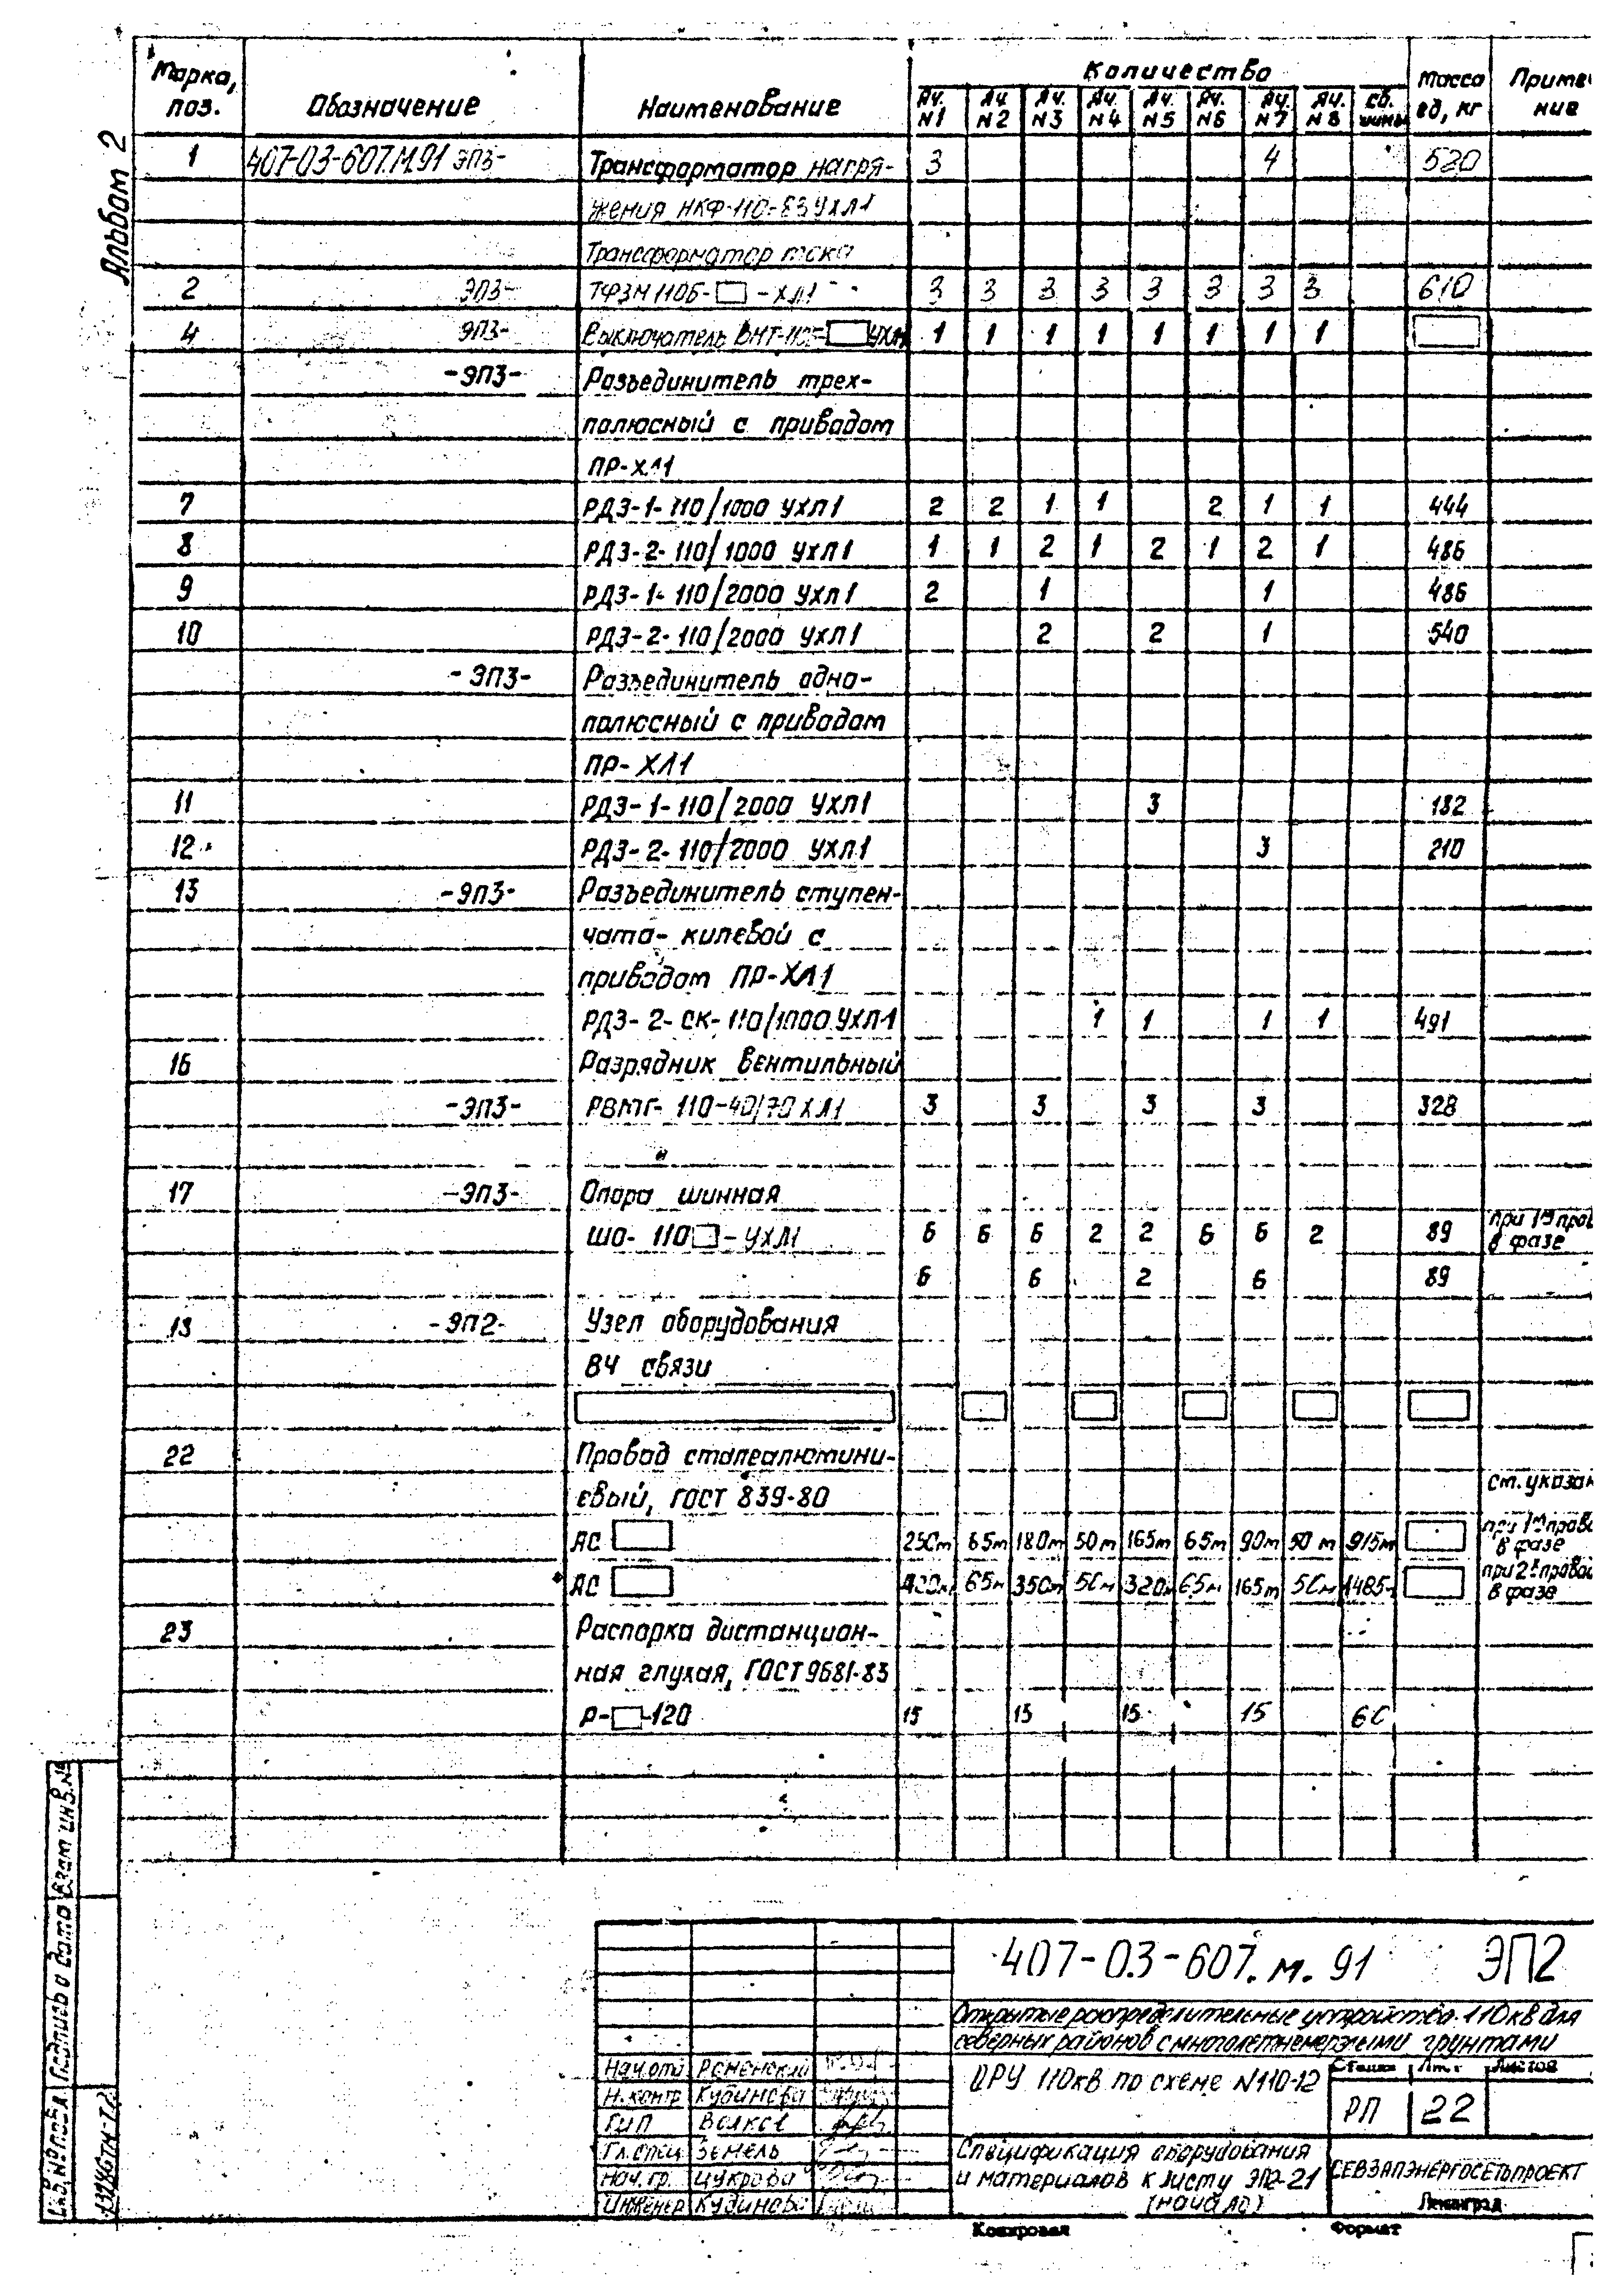 Альбом 2
Марка, поз. Обозначение Наименование Количество Масса ед, кг Примеч ние
Яч. N1 Яч. N2 Яч. N3 Яч. N4 Яч. N5 Яч. N6 Яч. N7 Яч. N8 сб. шины
1 407-03-607.М.91 ЭП3- Трансформатор напря- 3 4 520
жения НКФ-110-83УХЛ1
Трансформатор тока
2 ЭП3- ТФЗМ 110Б-□-ХЛ1 3 3 3 3 3 3 3 3 610
4 ЭП3- Выключатель ВМТ-110Б-□УХЛ1 1 1 1 1 1 1 1 1 □
-ЭП3- Разъединитель трех-
полюсный с приводом
ПР-ХЛ1
7 РДЗ-1-110/1000 УХЛ1 2 2 1 1 2 1 1 444
8 РДЗ-2-110/1000 УХЛ1 1 1 2 1 2 1 2 1 486
9 РДЗ-1-110/2000 УХЛ1 2 1 1 486
10 РДЗ-2-110/2000 УХЛ1 2 2 1 540
-ЭП3- Разъединитель одно-
полюсный с приводом
ПР-ХЛ1
11 РДЗ-1-110/2000 УХЛ1 3 182
12 РДЗ-2-110/2000 УХЛ1 3 210
13 -ЭП3- Разъединитель ступен-
чато-килевой с
приводом ПР-ХЛ1
РДЗ-2-СК-110/1000 УХЛ1 1 1 1 1 491
16 Разрядник вентильный
-ЭП3- РВМГ-110-40/70 ХЛ1 3 3 3 3 328
17 -ЭП3- Опора шинная
ШО-110□-УХЛ1 6 6 6 2 2 6 6 2 89 при 1м пров в фазе
6 6 2 6 89
13 -ЭП2- Узел оборудования
ВЧ связи
□ □ □ □ □ □
22 Провод сталеалюмини-
евый, ГОСТ 839-80 ст. указан
АС □ 250м 65м 180м 50м 165м 65м 90м 50м 915м □ при 1м прово в фазе
АС □ 65м 350м 50м 320м 65м 165м 50м 1485м □ при 2х провод в фазе
23 Распорка дистанцион-
ная глухая, ГОСТ 9681-83
Р-□-120 15 15 15 15 60
Инв. № подл. Подпись и дата Взам инв. №
407-03-607.м.91 ЭП2
Открытые распределительные устройства 110 кВ для
северных районов с многолетнемерзлыми грунтами
Нач. отд Роменский
Н. контр Кудинова
ГИП Волков
Гл. спец Земель
Нач. гр. Цукрова
Инженер Кудинова
ОРУ 110 кВ по схеме N110-12
Стадия Лист Листов
РП 22
Спецификация оборудования
и материалов к листу ЭП2-21
(начало)
СЕВЗАПЭНЕРГОСЕТЬПРОЕКТ
Ленинград
Копировал Формат